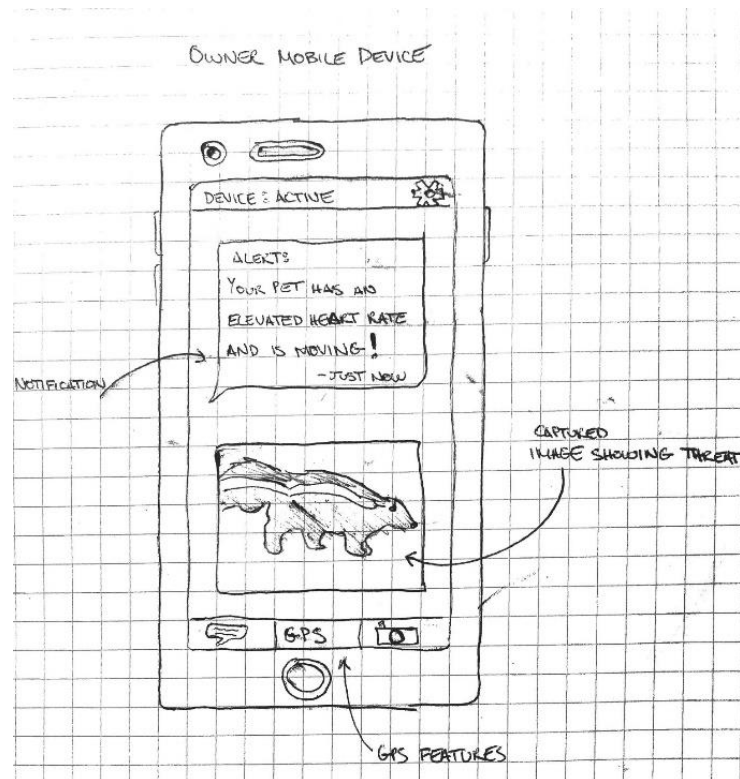 OWNER MOBILE DEVICE
DEVICE: ACTIVE
ALERT:
YOUR PET HAS AN
ELEVATED HEART RATE
AND IS MOVING!
-JUST NOW
NOTIFICATION
CAPTURED
IMAGE SHOWING THREAT
GPS
GPS FEATURES